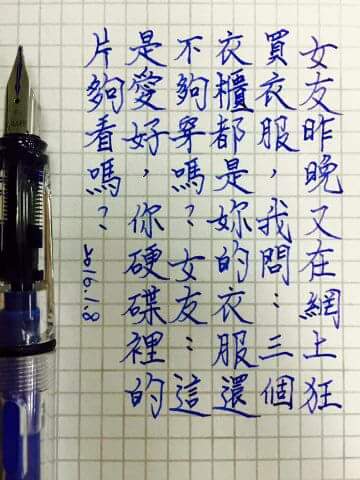 女友昨晚又在網上狂
買衣服，我問：三個
衣櫃都是妳的衣服還
不夠穿嗎？女友：這
是愛好，你硬碟裡的
片夠看嗎？2016.1.8